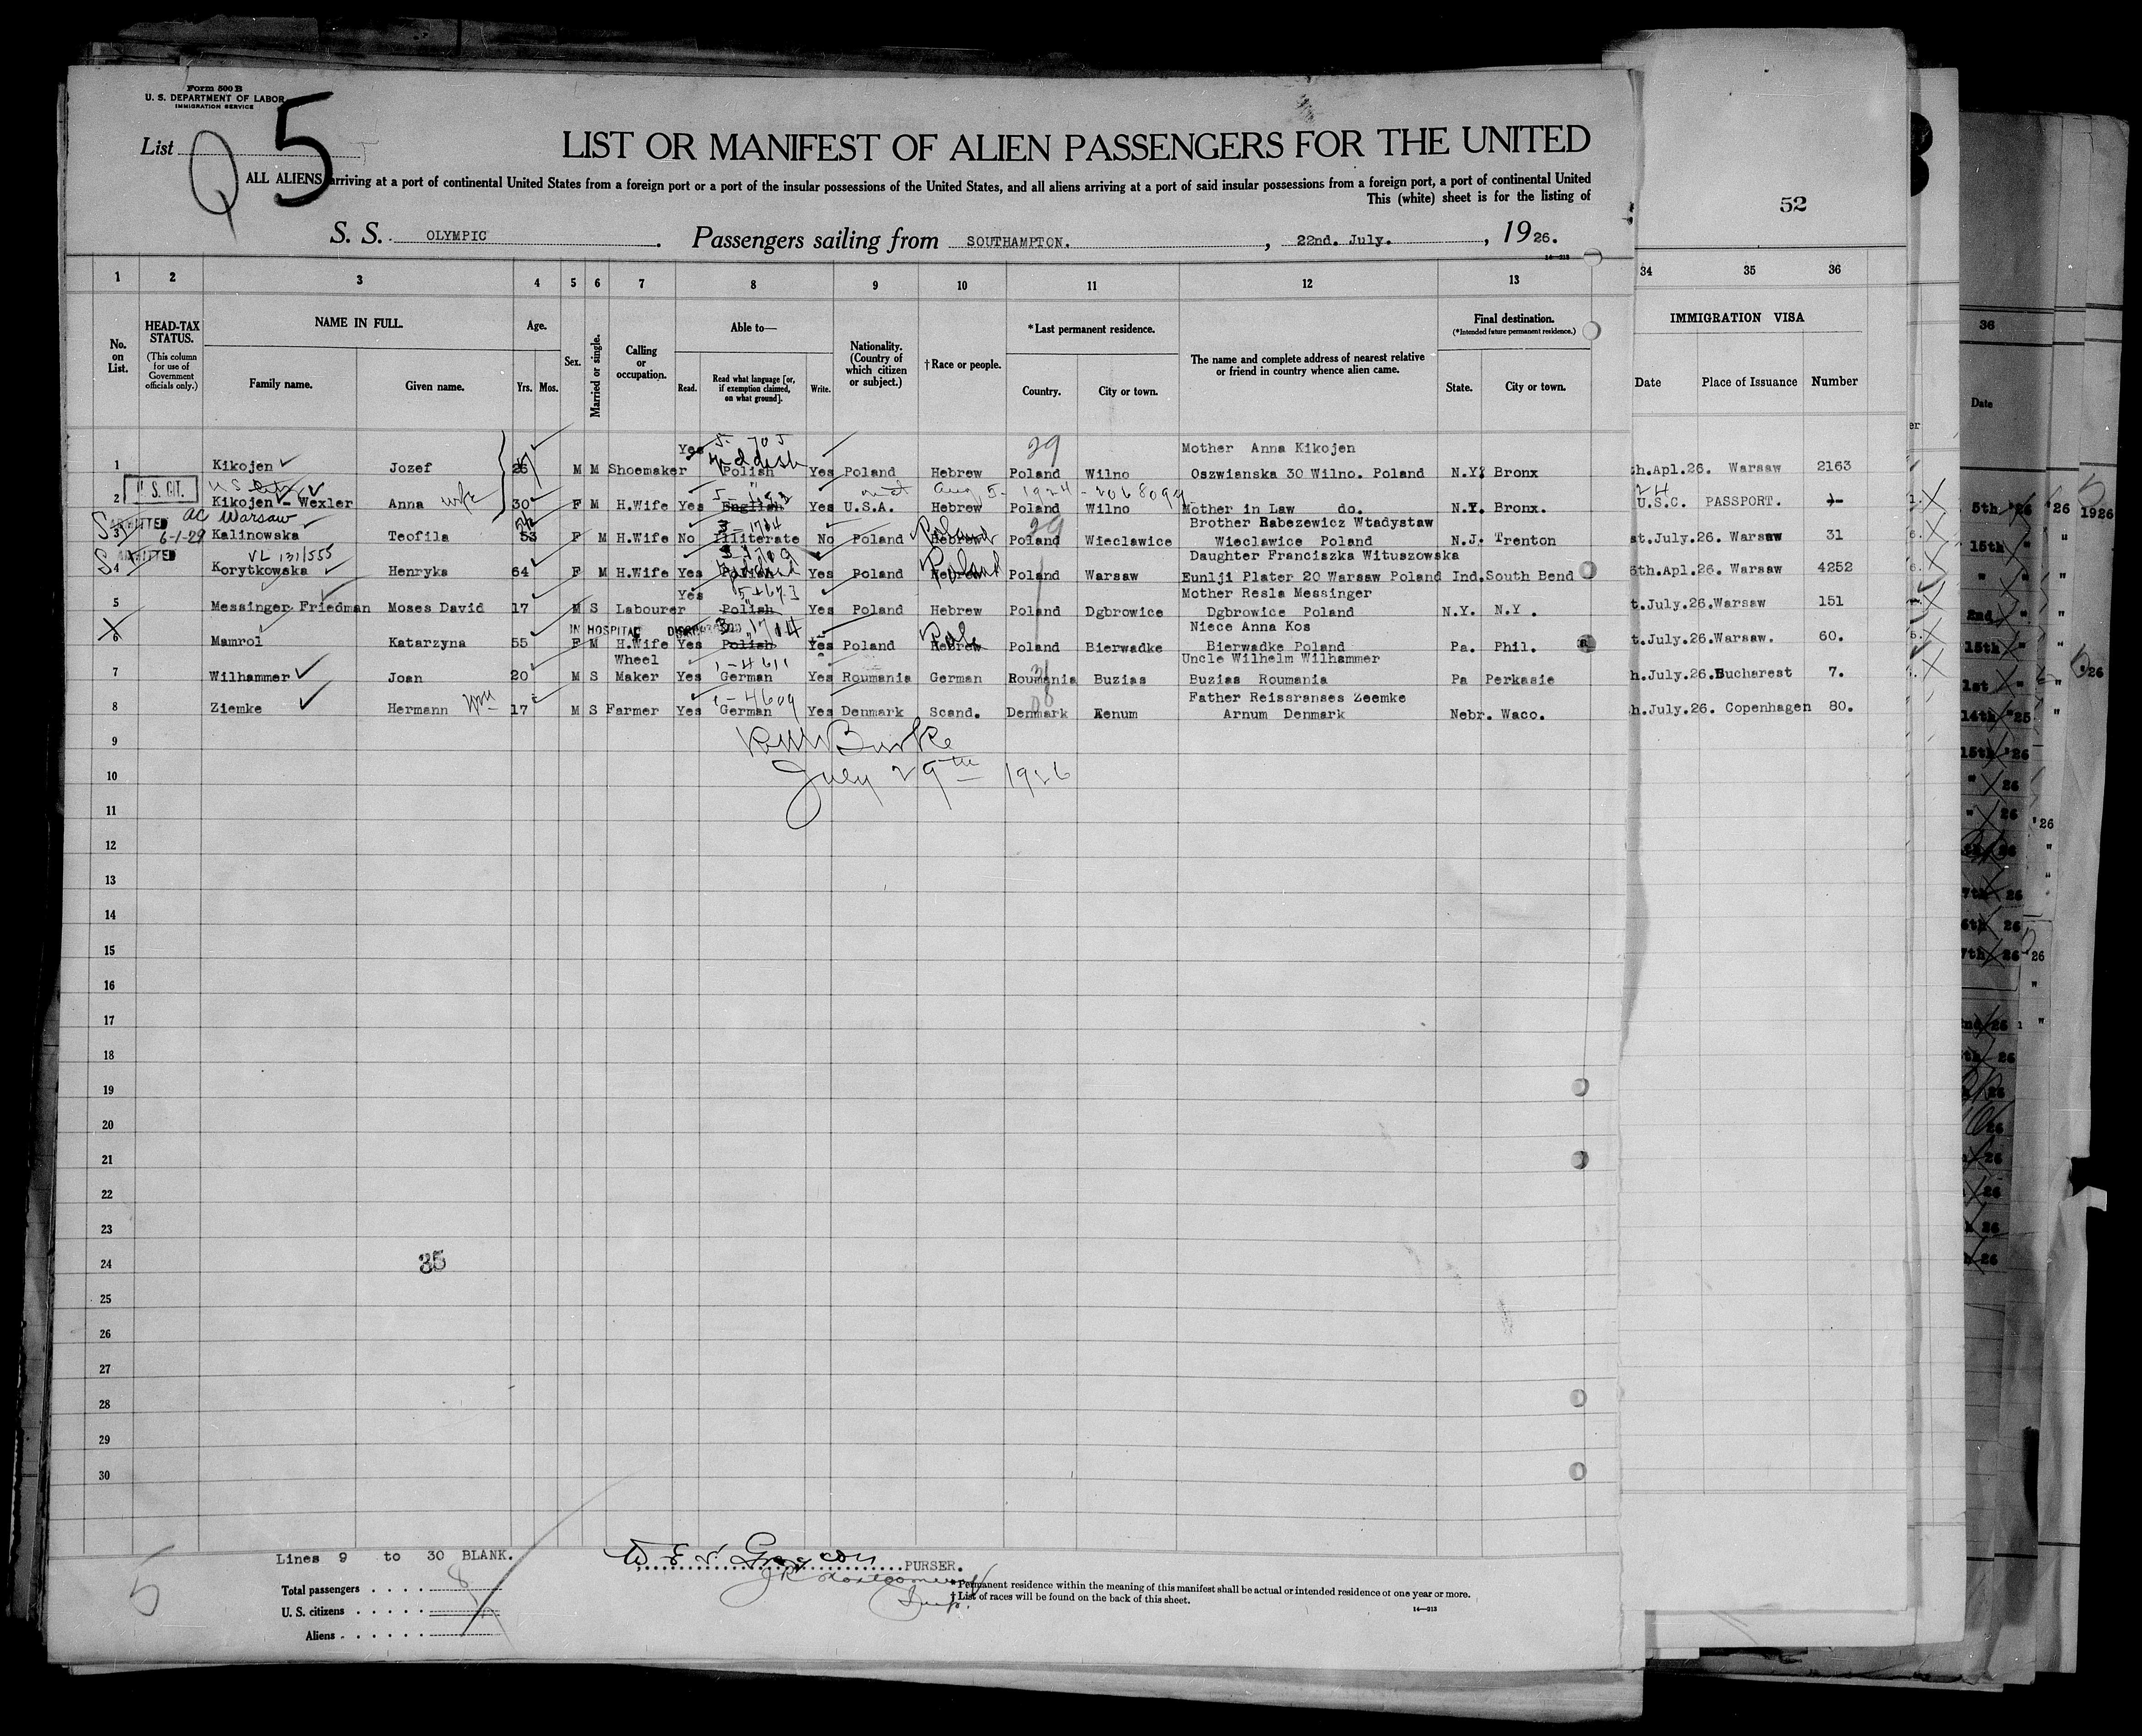 Form 500 B
U. S. DEPARTMENT OF LABOR
IMMIGRATION SERVICE
List Q 5
LIST OR MANIFEST OF ALIEN PASSENGERS FOR THE UNITED
ALL ALIENS arriving at a port of continental United States from a foreign port or a port of the insular possessions of the United States, and all aliens arriving at a port of said insular possessions from a foreign port, a port of continental United
This (white) sheet is for the listing of
52
S. S. OLYMPIC Passengers sailing from SOUTHAMPTON. , 22nd. July. , 1926.
14—213
1 2 3 4 5 6 7 8 9 10 11 12 13 34 35 36
No. on List.
HEAD-TAX STATUS.
(This column for use of Government officials only.)
NAME IN FULL.
Family name. Given name.
Age.
Yrs. Mos.
Sex.
Married or single.
Calling or occupation.
Able to—
Read. Read what language [or, if exemption claimed, on what ground]. Write.
Nationality. (Country of which citizen or subject.)
† Race or people.
*Last permanent residence.
Country. City or town.
The name and complete address of nearest relative or friend in country whence alien came.
Final destination.
(*Intended future permanent residence.)
State. City or town.
IMMIGRATION VISA
Date Place of Issuance Number
36
Date
Yes 5- 705 29 Mother Anna Kikojen
1 Kikojen Jozef 26 M M Shoemaker Yiddish Polish Yes Poland Hebrew Poland Wilno Oszwianska 30 Wilno. Poland N.Y. Bronx h.Apl.26. Warsaw 2163
U. S. CIT. Aug 5- 1924 - 2068099
2 Kikojen - Wexler Anna wife 30 F M H.Wife Yes English Yes U.S.A. Hebrew Poland Wilno Mother in Law do. N.Y. Bronx. U.S.C. PASSPORT.
ADMITTED 6-1-29 AC Warsaw 3-1704 29 Brother Rabezewicz Wtadystaw
3 Kalinowska Teofila 53 F M H.Wife No Illiterate No Poland Hebrew Poland Poland Wieclawice Wieclawice Poland N.J. Trenton t.July.26. Warsaw 31
ADMITTED VL 131/555 Daughter Franciszka Wituszowska
4 Korytkowska Henryka 64 F M H.Wife Yes Polish Yes Poland Hebrew Poland Poland Warsaw Eunlji Plater 20 Warsaw Poland Ind. South Bend 5th.Apl.26. Warsaw 4252
Yes Mother Resla Messinger
5 Messinger Friedman Moses David 17 M S Labourer Polish Yes Poland Hebrew Poland Dgbrowice Dgbrowice Poland N.Y. N.Y. t.July.26.Warsaw 151
IN HOSPITAL 3 1704 Niece Anna Kos
6 Mamrol Katarzyna 55 F M H.Wife Yes Polish Yes Poland Hebrew Pole Poland Bierwadke Bierwadke Poland Pa. Phil. t.July.26.Warsaw. 60.
Wheel 1-4611 31 Uncle Wilhelm Wilhammer
7 Wilhammer Joan 20 M S Maker Yes German Yes Roumania German Roumania Buzias Buzias Roumania Pa Perkasie h.July.26.Bucharest 7.
1-4609 Father Reissranses Zeemke
8 Ziemke Hermann 17 M S Farmer Yes German Yes Denmark Scand. Denmark Arnum Denmark Nebr. Waco. h.July.26. Copenhagen 80.
9 Burke
10 July 29th 1926
11
12
13
14
15
16
17
18
19
20
21
22
23
24 35
25
26
27
28
29
30
Lines 9 to 30 BLANK.
PURSER.
Total passengers 8
U. S. citizens
Aliens
5
*Permanent residence within the meaning of this manifest shall be actual or intended residence of one year or more.
† List of races will be found on the back of this sheet.
14—213